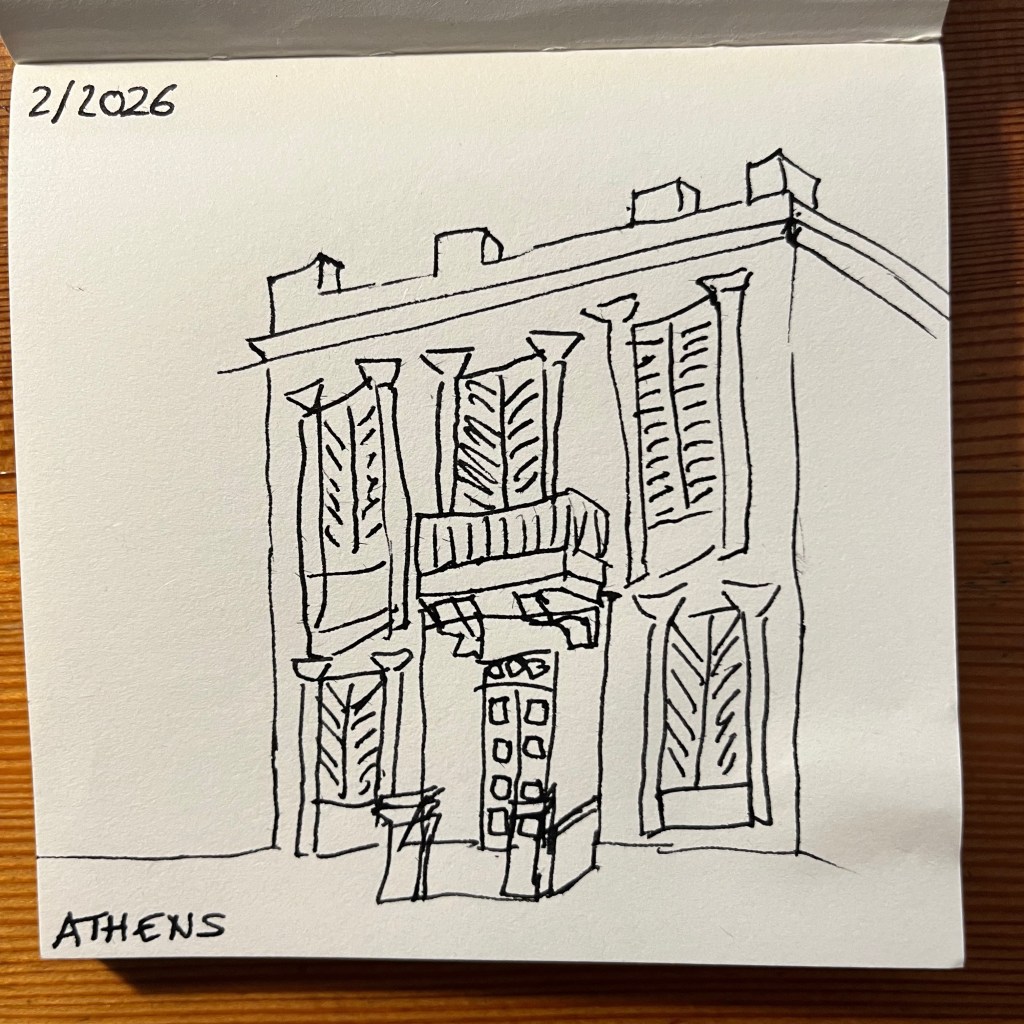 2/2026
ATHENS